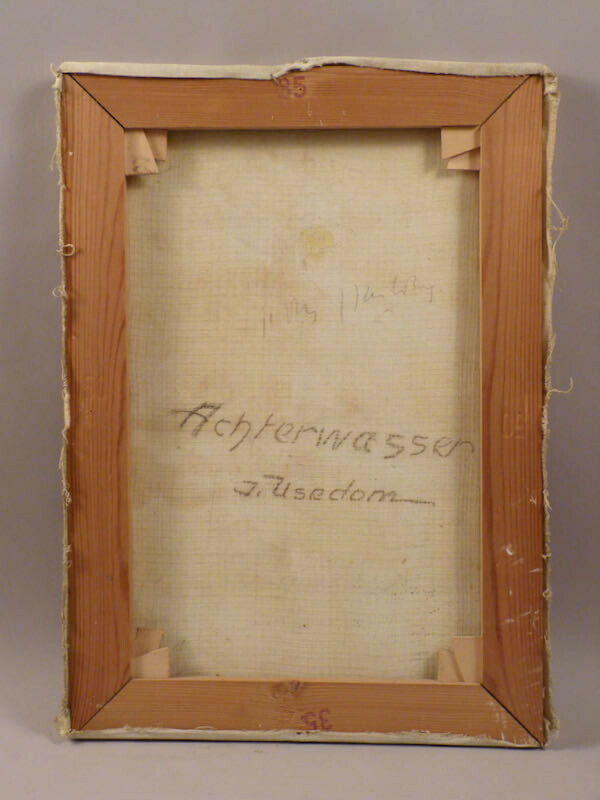 35
Achterwasser
J. Usedom
50
35